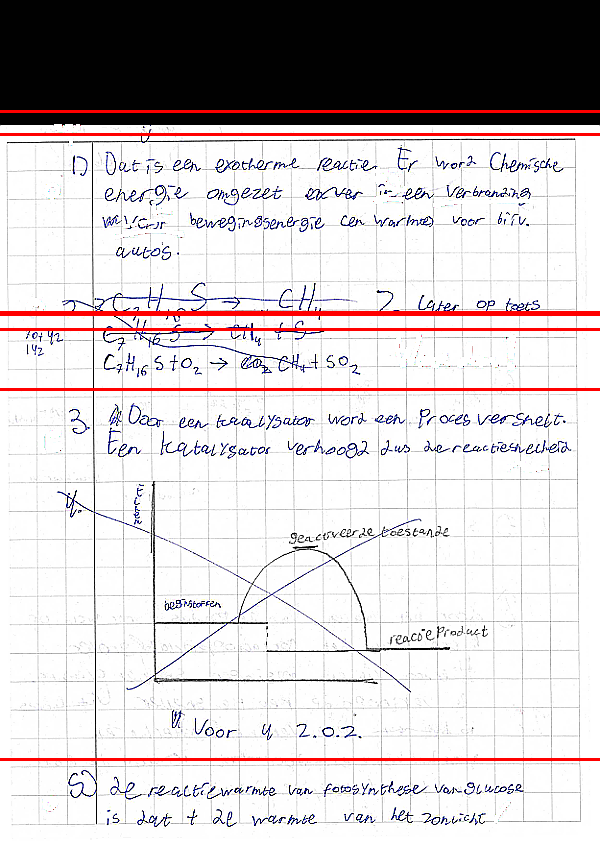 1) Dat is een exotherme reactie. Er word Chemische
energie omgezet in een Verbranding
bewegingsenergie (en warmte) voor bijv.
autos.
C7H16 S → CH4 2. Later op toets
C7 H16 S → CH4 + S
C7H16 S + O2 → CO2 CH4 + SO2
3. Door een kaalysator word een Proces versnelt.
Een katalysator verhoogd dus de reactiesnelheid
4.
geactiveerde toestande
beginstoffen
reactie Product
Voor 4 2.0.2.
5) de reactiewarmte van fotosynthese van glucose
is dat + de warmte van het zonlicht